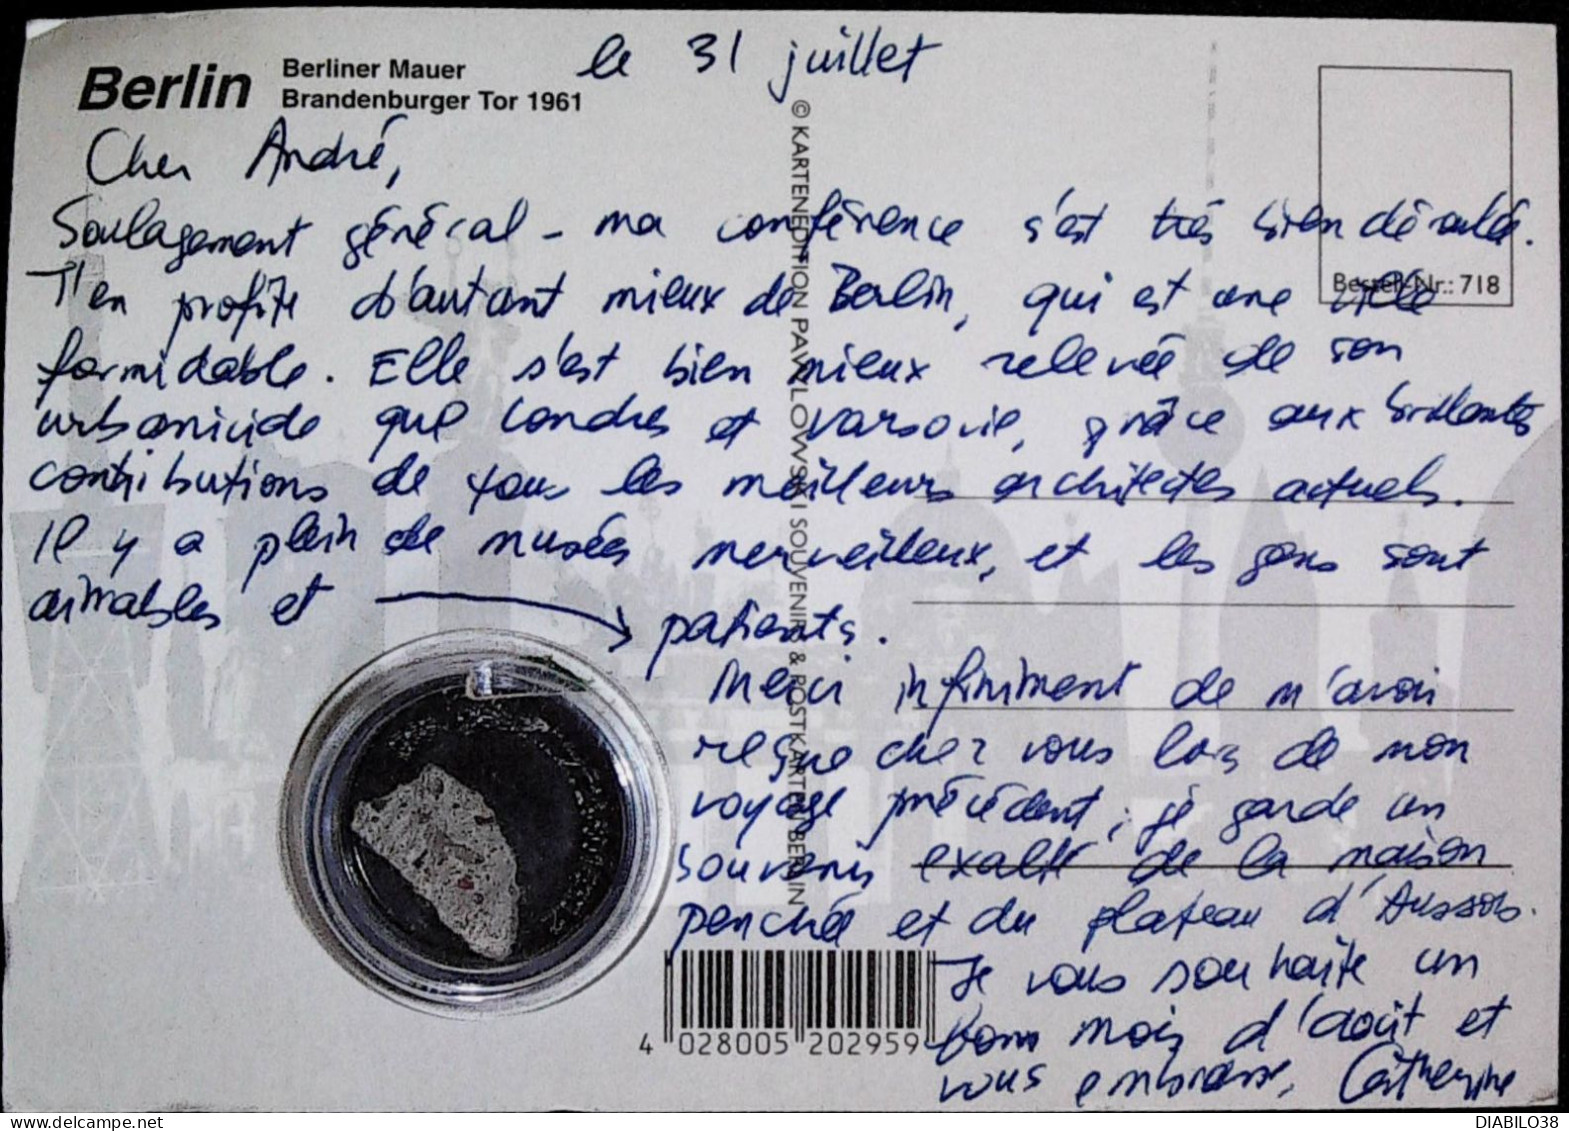 Berlin
Berliner Mauer
Brandenburger Tor 1961
le 31 juillet
Cher André,
Soulagement général - ma conférence s'est très bien déroulée.
J'en profite d'autant mieux de Berlin, qui est une ville
formidable. Elle s'est bien mieux relevée de son
urbanicide que Londres et Varsovie, grâce aux brillantes
contributions de tous les meilleurs architectes actuels.
Il y a plein de musées merveilleux, et les gens sont
aimables et → patients.
Merci infiniment de m'avoir
reçue chez vous lors de mon
voyage précédent ; je garde un
souvenir exalté de la maison
penchée et du plateau d'Aussois.
Je vous souhaite un
bon mois d'août et
vous embrasse, Catherine
Bestell-Nr.: 718
© KARTENEDITION PAWLOWSKI SOUVENIRS & POSTKARTEN BERLIN
4 028005 202959
DIABILO38